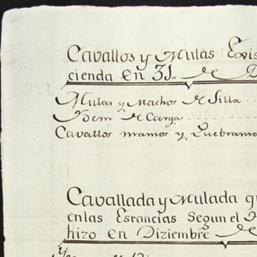 Cavallos y Mulas Exis
cienda en 31. de D
Mulas y Machos de Silla
Ydem de Carga
Cavallos mansos y Quebranta
Cavallada y Mulada q
en las Estancias Segun el
hizo en Diziembre de